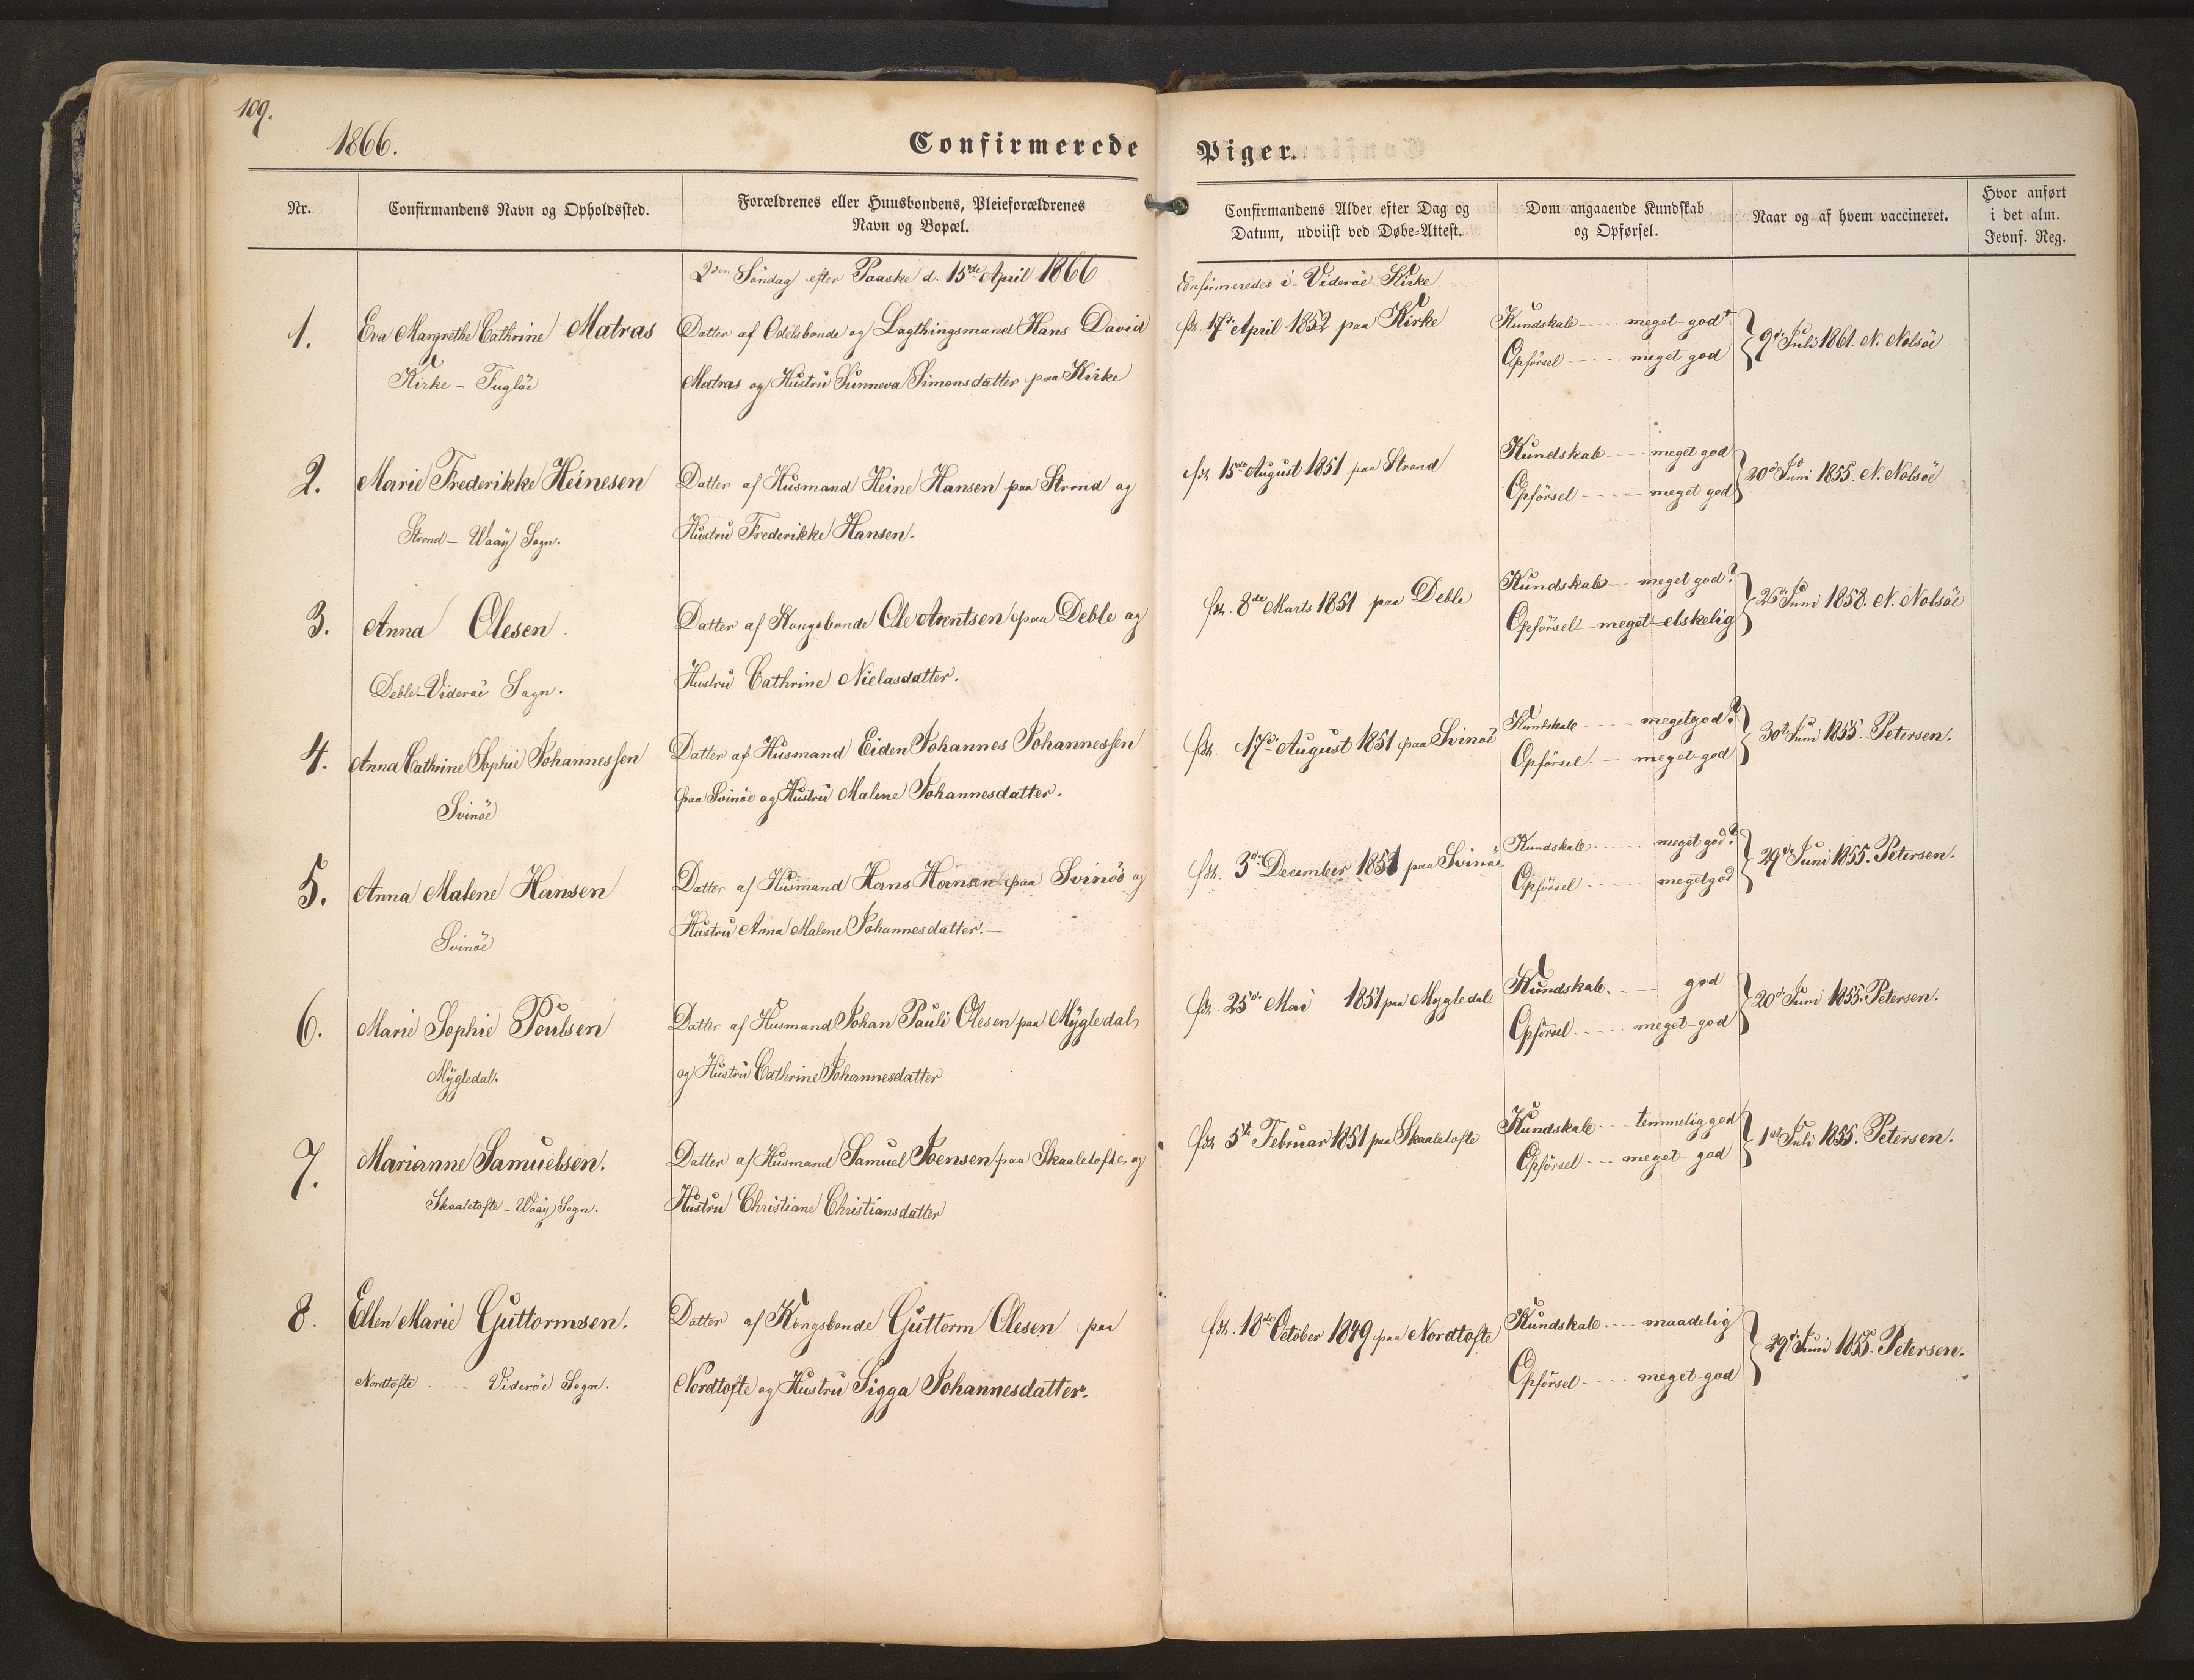 109.
1866.
Confirmerede Piger.
Nr.
Confirmandens Navn og Opholdssted.
Forældrenes eller Huusbondens, Pleieforældrenes
Navn og Bopæl.
Confirmandens Alder efter Dag og
Datum, udviist ved Døbe-Attest.
Dom angaaende Kundskab
og Opførsel.
Naar og af hvem vaccineret.
Hvor anført
i det alm.
Jevnf. Reg.
2den Söndag efter Paaske d. 15de April 1866
Confirmeredes i Videröe Kirke
1.
Eva Margrethe Cathrine Matras
Kirke - Fuglöe
Datter af Odelsbonde og Lagthingsmand Hans David
Matras og Hustru Sunneva Simonsdatter paa Kirke
fdt. 17de April 1852 paa Kirke
Kundskab ---- meget god+
Opförsel ----- meget god
9de Juli 1861. N. Nolsöe
2.
Marie Frederikke Heinesen
Strond - Waaÿ Sogn.
Datter af Husmand Heine Hansen paa Strond og
Hustru Frederikke Hansen.
fdt. 15de August 1851 paa Strond
Kundskab ---- meget god
Opförsel ---- meget god
20de Juni 1855. N. Nolsöe
3.
Anna Olesen
Deble - Videröe Sogn.
Datter af Kongsbonde Ole Arentsen paa Deble og
Hustru Cathrine Nielasdatter.
fdt. 8de Marts 1851 paa Deble
Kundskab -- meget god?
Opförsel - meget elskelig
25de Juni 1858. N. Nolsöe
4.
Anna Cathrine Sophie Johannessen
Svinöe
Datter af Husmand Eiden Johannes Johannessen
paa Svinöe og Hustru Malene Johannesdatter.
fdt. 17de August 1851 paa Svinöe
Kundskab ---- meget god?
Opförsel. -- meget god
30te Juni 1855. Petersen.
5.
Anna Malene Hansen
Svinöe
Datter af Husmand Hans Hansen paa Svinöe og
Hustru Anna Malene Johannesdatter. -
fdt. 3die December 1851 paa Svinöe
Kundskab ------ meget god?
Opförsel ------ meget god
29de Juni 1855. Petersen.
6.
Marie Sophie Poulsen
Mÿgledal.
Datter af Husmand Johan Pauli Olesen paa Mÿgledal
og Hustru Cathrine Johannesdatter
fdt. 25de Mai 1851 paa Mygledal
Kundskab. ---- god
Opförsel ----- meget god
20de Juni 1855. Petersen.
7.
Marianne Samuelsen.
Skaaletofte - Waaÿ Sogn.
Datter af Husmand Samuel Joensen paa Skaaletofte, og
Hustru Christiane Christiansdatter
fdt. 5te Februar 1851 paa Skaaletofte
Kundskab --- temmelig god
Opförsel --- meget god
1ste Juli 1855. Petersen.
8.
Ellen Marie Guttormsen.
Nordtofte ---- Videröe Sogn.
Datter af Kongsbonde Guttorm Olesen paa
Nordtofte og Hustru Sigga Johannesdatter.
fdt. 18de October 1849 paa Nordtofte
Kundskab ---- maadelig
Opförsel ---- meget god
29de Juni 1855. Petersen.